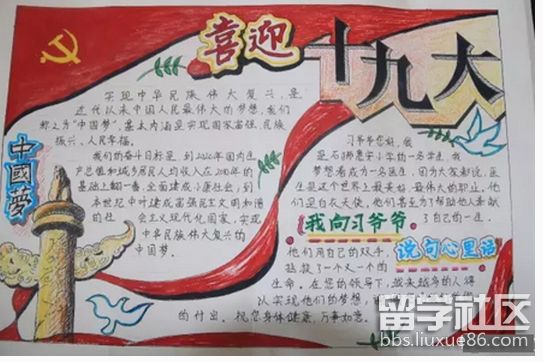 喜迎
十九大
实现中华民族伟大复兴,是
近代以来中国人民最伟大的梦想,我们
称之为“中国梦”,基本内涵是实现国家富强、民族
振兴、人民幸福。
我们的奋斗目标是,到2020年国内生
产总值和城乡居民人均收入在2010年的
基础上翻一番,全面建成小康社会;到
本世纪中叶建成富强民主文明和谐
的社会主义现代化国家,实现
中华民族伟大复兴的
中国梦。
中國夢
习爷爷您好,我
是石狮惠安小学的一名学生,我
梦想着成为一名医生,因为大家都说,医
生是这个世界上最美好、最伟大的职业,他
们是白衣天使,他们甚至为了帮助他人奉献
了自己的一生,
我向习爷爷
说句心里话
他们用自己的双手,
拯救了一个又一个的
生命。在您的领导下,越来越多的人得
以实现他们的梦想,
的付出。祝您身体健康,万事如意。
留学社区
bbs.liuxue86.com